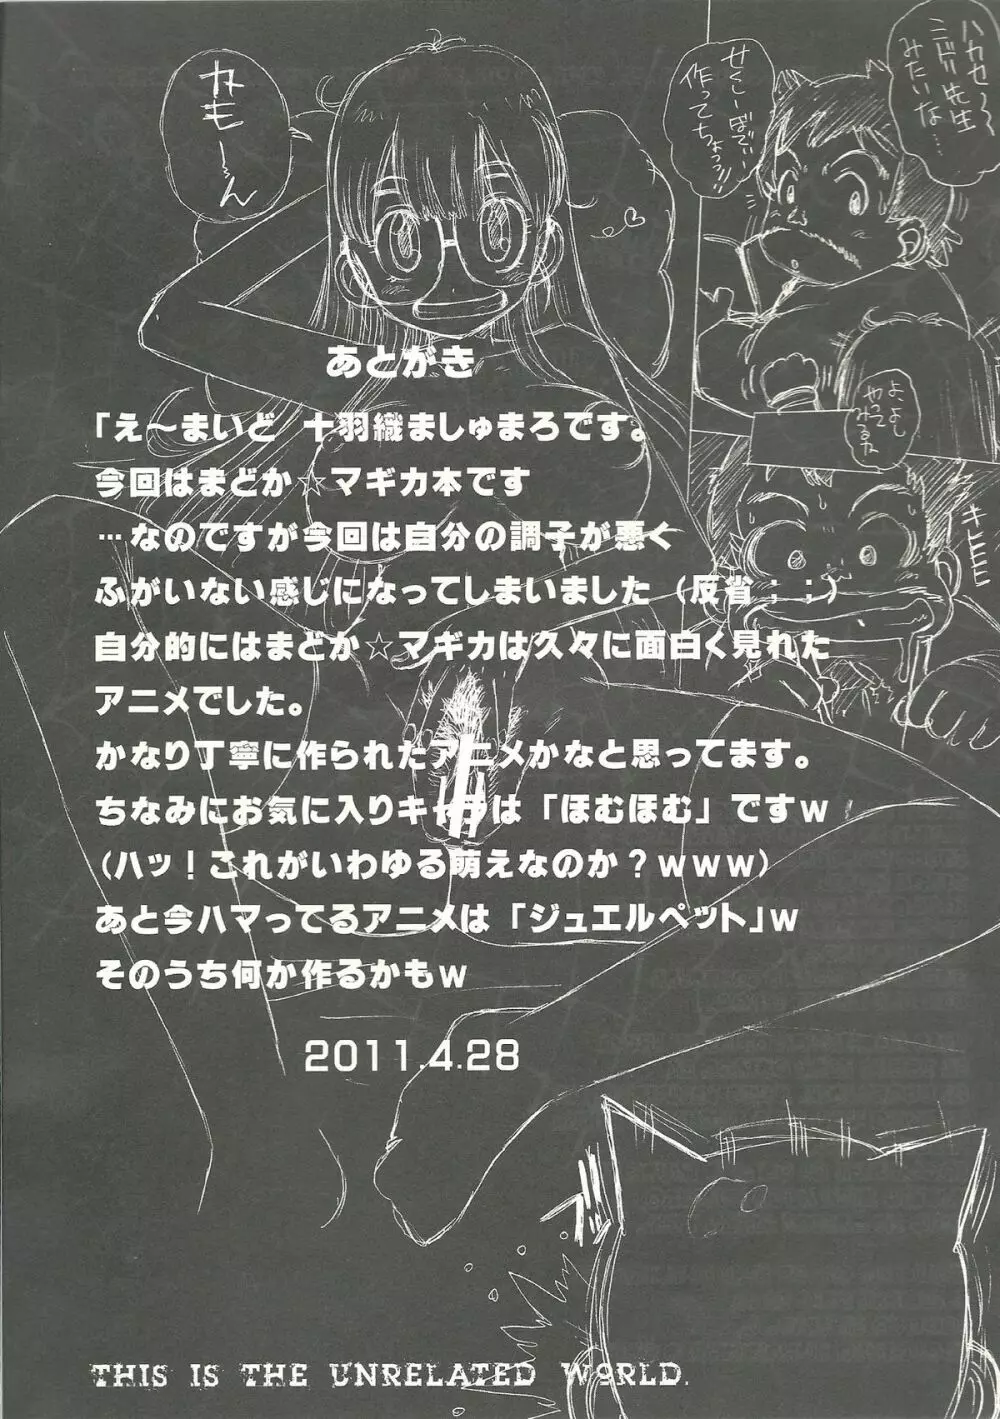 あとがき
「え〜まいど 十羽織ましゅまろです。
今回はまどか☆マギカ本です
…なのですが今回は自分の調子が悪く
ふがいない感じになってしまいました（反省；；）
自分的にはまどか☆マギカは久々に面白く見れた
アニメでした。
かなり丁寧に作られたアニメかなと思ってます。
ちなみにお気に入りキャラは「ほむほむ」ですｗ
（ハッ！これがいわゆる萌えなのか？ｗｗｗ）
あと今ハマってるアニメは「ジュエルペット」ｗ
そのうち何か作るかもｗ
2011.4.28
THIS IS THE UNRELATED WORLD.